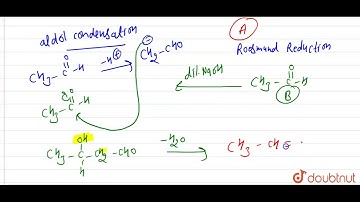 aldol condensation
A
Rosenmund Reduction
CH3-C-H
O
-H⊕
⊖
CH2-CHO
dil.NaOH
CH3-C-H
O
B
CH3-C-H
O
OH
CH3-C-CH2-CHO
H
-H2O
CH3-CH=
doubtnut